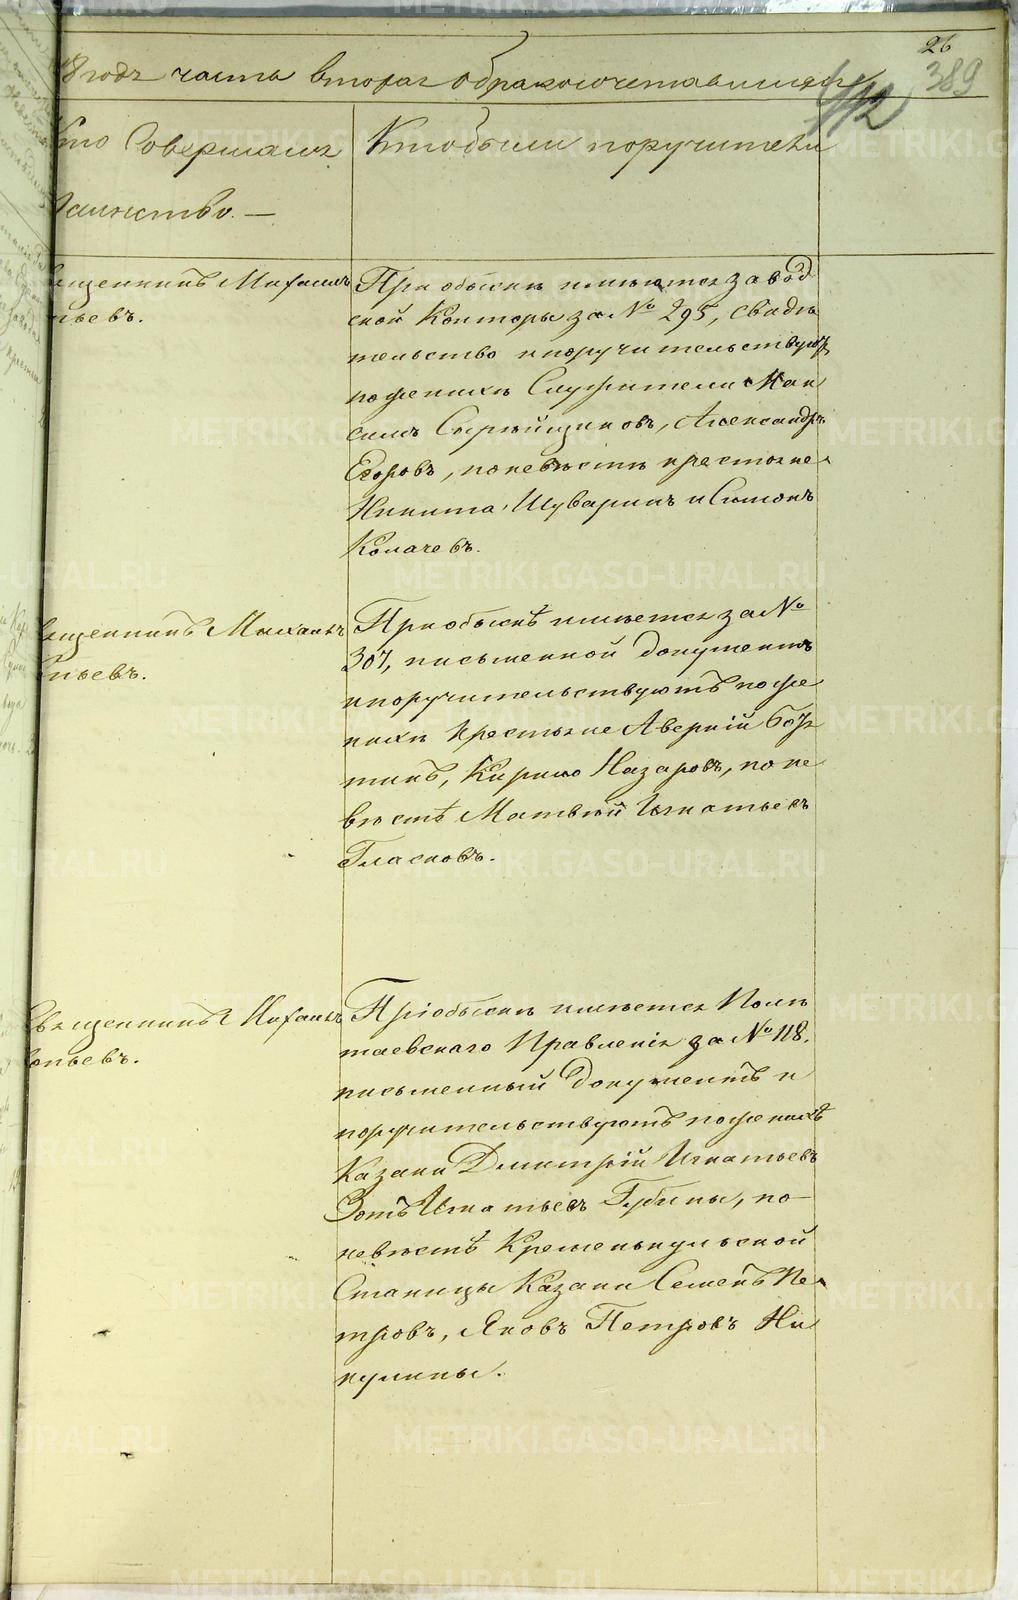 26
389
412
8 годъ часть вторая о бракосочетавшихся
Кто Совершалъ
Таинство. —
Кто были поручители
Священникъ Михаилъ
пьевъ.
При обыскѣ имѣется завод
ской Конторы за № 295, свидѣ
тельство и поручительствуютъ
по женихѣ Служители Мак
симъ Сырейщиковъ, Александръ
Егоровъ, по невѣстѣ крестьяне
Никита Шуваринъ и Симонъ
Колачевъ.
Священникъ Михаилъ
пьевъ.
При обыскѣ имѣется за №
307, письменной документъ
и поручительствуютъ по же
нихѣ Крестьяне Аверкій
Кирило Назаровъ, по не
вѣстѣ Матвѣй Игнатьевъ
Гласковъ.
Священникъ Михаилъ
пьевъ.
При обыскѣ имѣется Полѣ
таевскаго Правленія за № 118.
письменный документъ и
поручительствуютъ по женихѣ
Казаки Дмитрій Игнатьевъ
Зотъ Игнатьевъ Губины, по
невѣстѣ Кременькульской
Станицы Казаки Семенъ Пе
тровъ, Яковъ Петровъ Ни
кулины.
METRIKI.GASO-URAL.RU